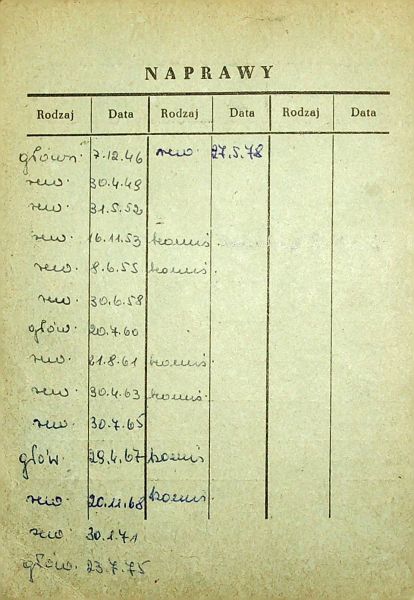 NAPRAWY
Rodzaj Data Rodzaj Data Rodzaj Data
główn. 7.12.46 rew. 27.5.78
rew. 30.4.49
rew. 31.5.52
rew. 16.11.53 komis.
rew. 8.6.55 komis.
rew. 30.6.58
głów. 20.7.60
rew. 21.8.61 komis
rew. 30.4.63 komis.
rew. 30.7.65
głów. 29.4.67 komis
rew. 20.11.68 komis
rew. 30.1.71
głów. 23.7.75